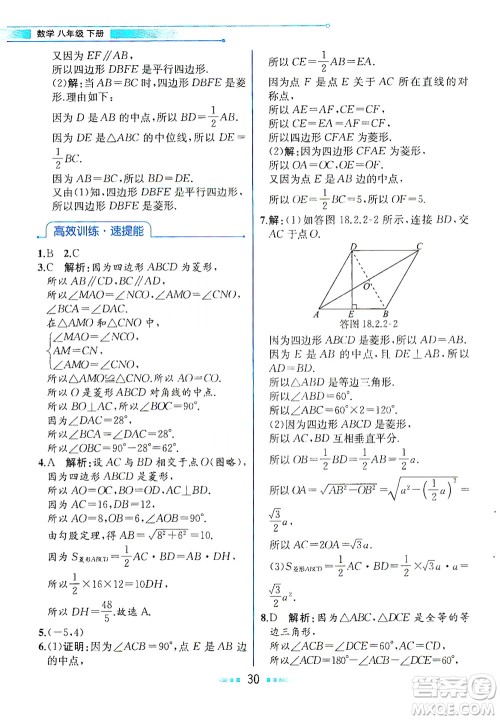 数学 八年级 下册
又因为 EF∥AB,
所以四边形 DBFE 是平行四边形.
(2)解:当 AB=BC 时,四边形 DBFE 是菱形.理由如下:
因为 D 是 AB 的中点,
所以 BD=1/2AB.
因为 DE 是△ABC 的中位线,所以 DE=1/2BC.
又因为 AB=BC,所以 BD=DE.
又由(1)知,四边形 DBFE 是平行四边形,
所以四边形 DBFE 是菱形.
高效训练·速提能
1.B 2.C
3.C 解析:因为四边形 ABCD 为菱形,
所以 AB∥CD,AB=BC,AD∥BC.
所以∠MAO=∠NCO,∠BCA=∠CAD=28°.
在△AMO 和△CNO 中,
∠MAO=∠NCO,
AM=CN,
∠AMO=∠CNO,
所以△AMO≌△CNO.所以 AO=CO.
所以 O 是菱形 ABCD 对角线的中点.
所以 BO⊥AC,所以∠BOC=90°.
因为∠BCA=28°,
所以∠OBC=90°-28°=62°.
4.A 解析:设 AC 与 BD 相交于点 O(图略),
因为四边形 ABCD 是菱形,
所以 AO=OC,BO=OD,AC⊥BD.
因为 AC=16,所以 OA=8.
因为 DB=12,所以 OB=6.
由勾股定理,得 AB=√(8²+6²)=10.
因为 S菱形ABCD=1/2AC·BD=AB·DH,
所以 1/2×16×12=10DH,
所以 DH=48/5.故选 A.
5.(-5,4)
6.(1)证明:因为∠ACB=90°,点 E 为 AB 的中点,
所以 CE=1/2AB=EA.
因为点 F 是点 E 关于 AC 所在直线的对称点,
所以 AE=AF,CE=CF,
所以 CE=EA=AF=CF,
所以四边形 CFAE 为菱形.
(2)解:因为四边形 CFAE 为菱形,
所以 OA=OC,OE=OF.
因为点 E 为 AB 的中点,
所以 OE=1/2BC=5,所以 OF=5.
7.解:(1)如答图 18.2.2-2 所示,连接 BD,交 AC 于点 O.
D C
O
A E B
答图 18.2.2-2
因为四边形 ABCD 是菱形,所以 AD=AB.
因为 E 是 AB 的中点,且 DE⊥AB,
所以 AD=BD.
所以△ABD 是等边三角形.
所以∠ABD=60°.
所以∠ABC=60°×2=120°.
(2)因为四边形 ABCD 是菱形,
所以 AC,BD 互相垂直平分.
所以 OB=1/2BD=1/2AB=1/2a.
所以 OA=√(AB²-OB²)=√(a²-(1/2a)²)=
√3/2a.
所以 AC=2OA=√3a.
(3)S菱形ABCD=1/2AC·BD=1/2×√3a·a=
√3/2a².
8.D 解析:因为△ABC,△DCE 都是全等的等边三角形,
所以∠ACB=∠DCE=60°,AC=CD.
30